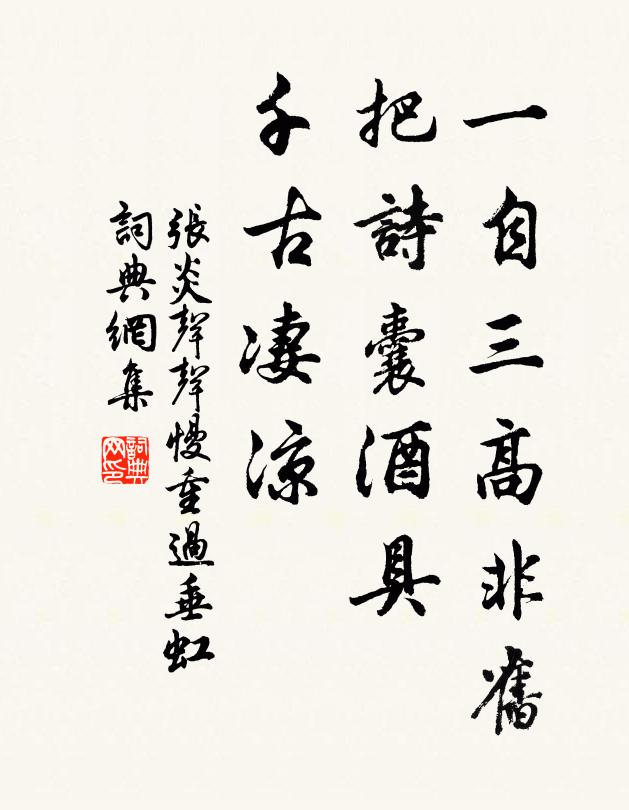 一自三高非舊
把詩囊酒具
千古凄涼
張炎聲聲慢重過垂虹
詞典網集
詞典网印